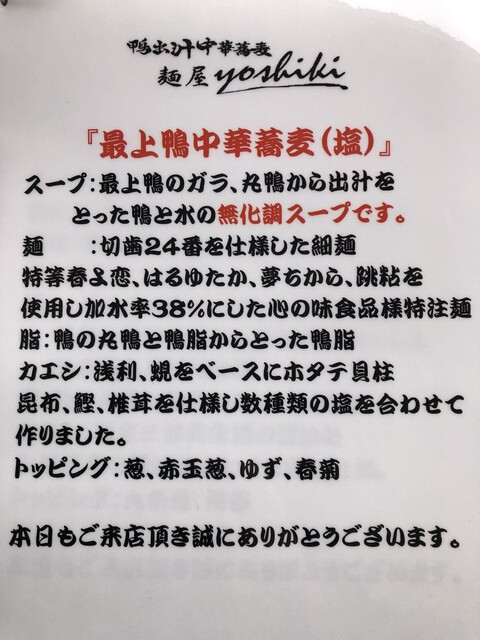 鴨出汁中華蕎麦
麺屋 yoshiki
『最上鴨中華蕎麦(塩)』
スープ:最上鴨のガラ、丸鴨から出汁を
とった鴨と水の無化調スープです。
麺 :切歯24番を仕様した細麺
特等春よ恋、はるゆたか、夢ちから、跳粘を
使用し加水率38%にした心の味食品様特注麺
脂:鴨の丸鴨と鴨脂からとった鴨脂
カエシ:浅利、蜆をベースにホタテ貝柱
昆布、鰹、椎茸を仕様し数種類の塩を合わせて
作りました。
トッピング:葱、赤玉葱、ゆず、春菊
本日もご来店頂き誠にありがとうございます。